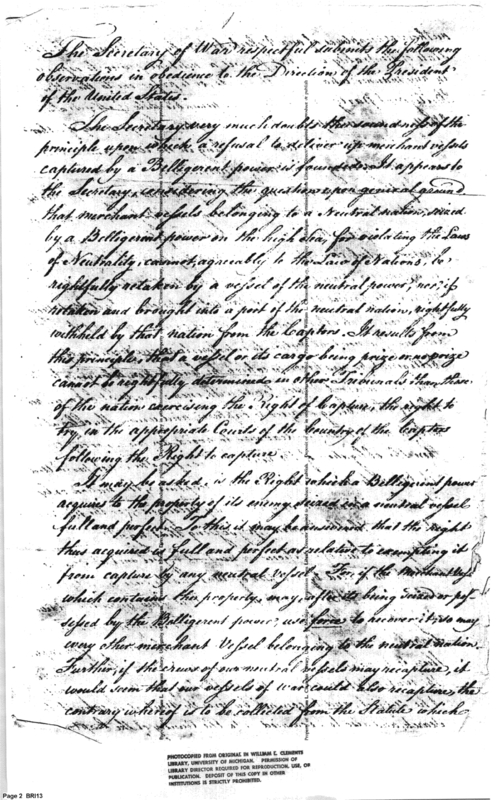 The Secretary of War respectful submits the following
observations in obedience to the Direction of the President
of the United States.
The Secretary very much doubts the soundness of the
principle upon which a refusal to deliver up merchant vessels
captured by a Belligerent power is founded. It appears to
the Secretary, considering the question upon general ground
that merchant vessels belonging to a Neutral nation, seized
by a Belligerent power on the high Sea, for violating the Laws
of Neutrality, cannot, agreeably to the Law of Nations, be
rightfully retaken by a vessel of the neutral power; nor, if
retaken and brought into a port of the neutral nation, rightfully
withheld by that nation from the Captors. It results from
this principle, that a vessel or its cargo being prize or no prize
cannot be rightfully determined in other Tribunals than those
of the nation exercising the Right of Capture, the right to
try, in the appropriate Courts of the Country of the Captors
following the Right to capture
It may be asked, is the Right which a Belligerent power
acquires to the property of its enemy seized in a neutral vessel
full and perfect. To this it may be answered that the Right
thus acquired is full and perfect as relative to exempting it
from capture by any neutral vessel. For, if the Merchant Vessel
which contains this property, may, after its being seized or pos-
sessed by the Belligerent power, use force to recover it, so may
every other merchant Vessel belonging to the neutral nation.
Further, if the crews of our neutral vessels may recapture, it
would seem that our vessels of war could also recapture, the
contrary whereof is to be collected from the Statute which
PHOTOCOPIED FROM ORIGINAL IN WILLIAM L. CLEMENTS
LIBRARY, UNIVERSITY OF MICHIGAN. PERMISSION OF
LIBRARY DIRECTOR REQUIRED FOR REPRODUCTION, USE, OR
PUBLICATION. DEPOSIT OF THIS COPY IN OTHER
INSTITUTIONS IS STRICTLY PROHIBITED.
Page 2 BRI13